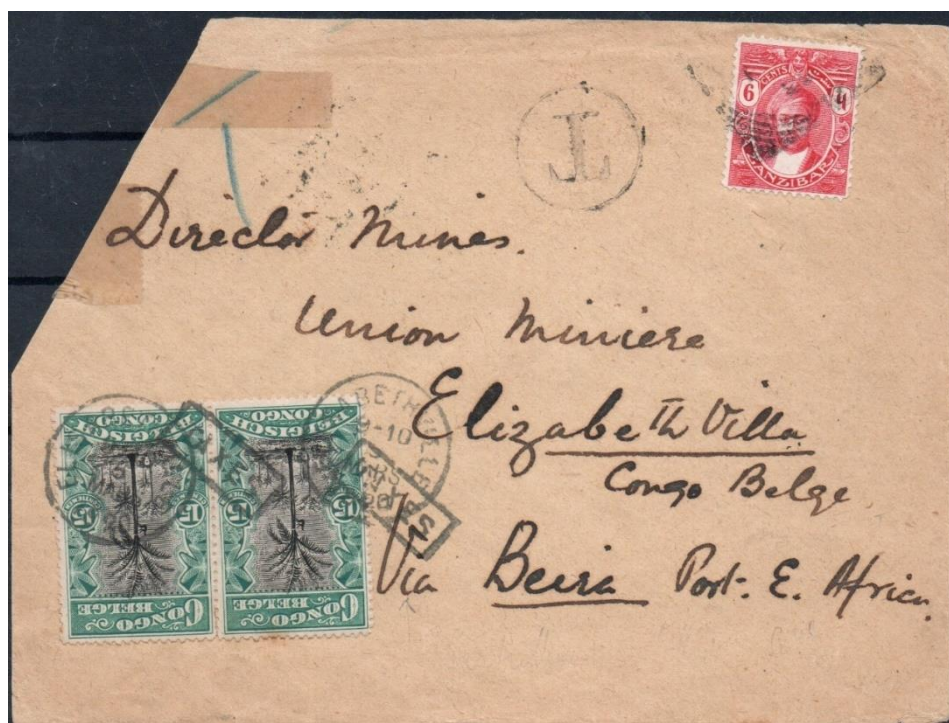 6 CENTS
ZANZIBAR
T
Director Mines.
Union Miniere
Elizabeth Villa
Congo Belge
Via Beira Port. E. Africa.
BELGISCH CONGO
15 15
CONGO BELGE
BELGISCH CONGO
15 15
CONGO BELGE